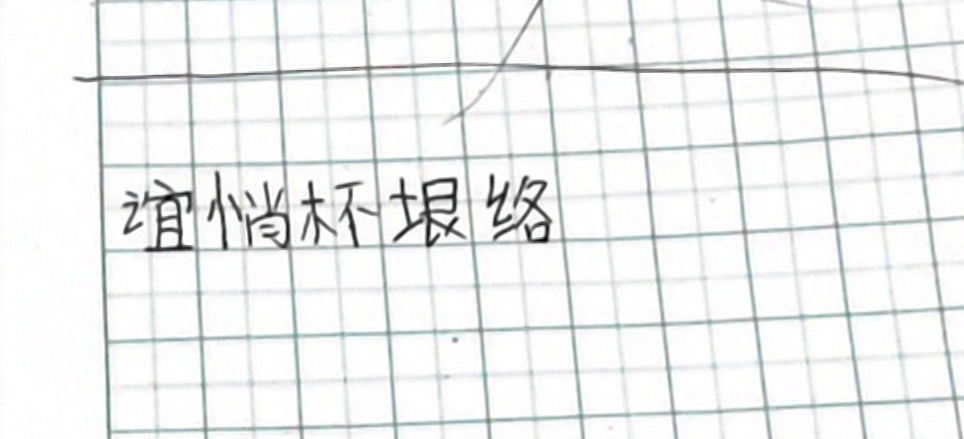 谊悄杯垠络